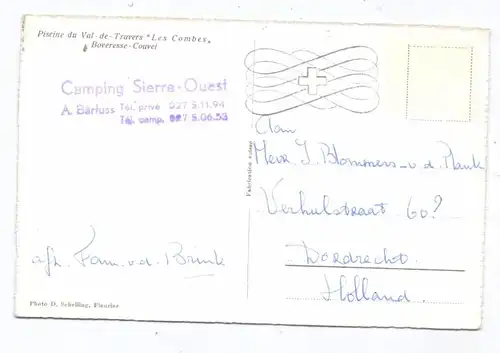 Piscine du Val-de-Travers "Les Combes"
Boveresse-Couvet
Camping Sierre-Ouest
A. Bärfuss Tél. privé 027 5.11.94
Tél. camp. 027 5.06.53
Aan
Mevr. J. Blommers-v.d. Plank
Verhulstraat 60?
Dordrecht
Holland
afz. Fam. v.d. Brink
Photo D. Schelling, Fleurier
Fabrication suisse